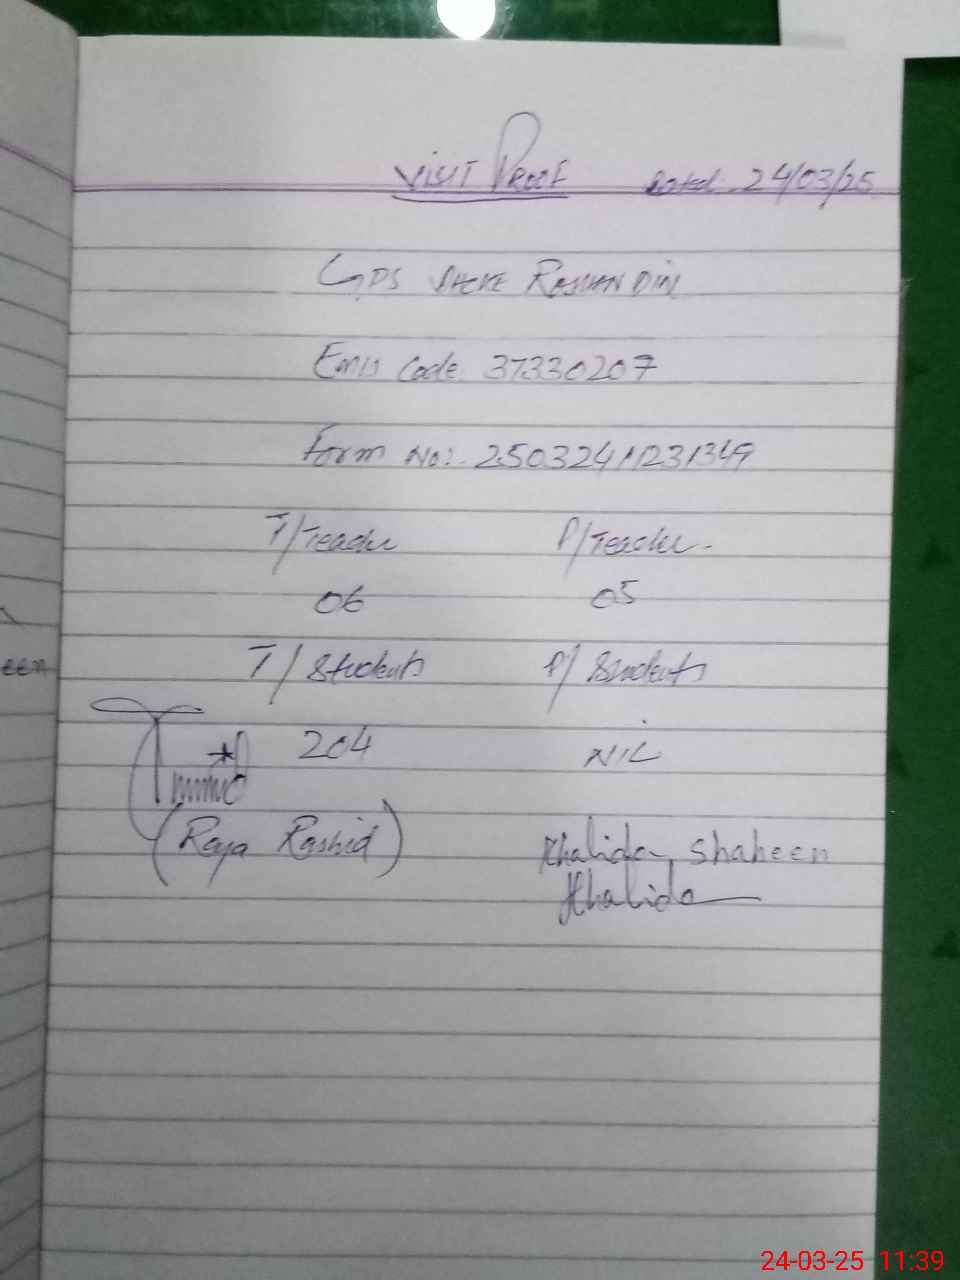 Visit Proof Dated 24/03/25
GPS Roshan Din
Emis Code 37330207
Form No:- 25032411231349
T/Teacher P/Teacher.
06 05
T/Students P/Students
204 NIL
(Raja Rashid)
Khalida Shaheen
Khalida
een
24-03-25 11:39